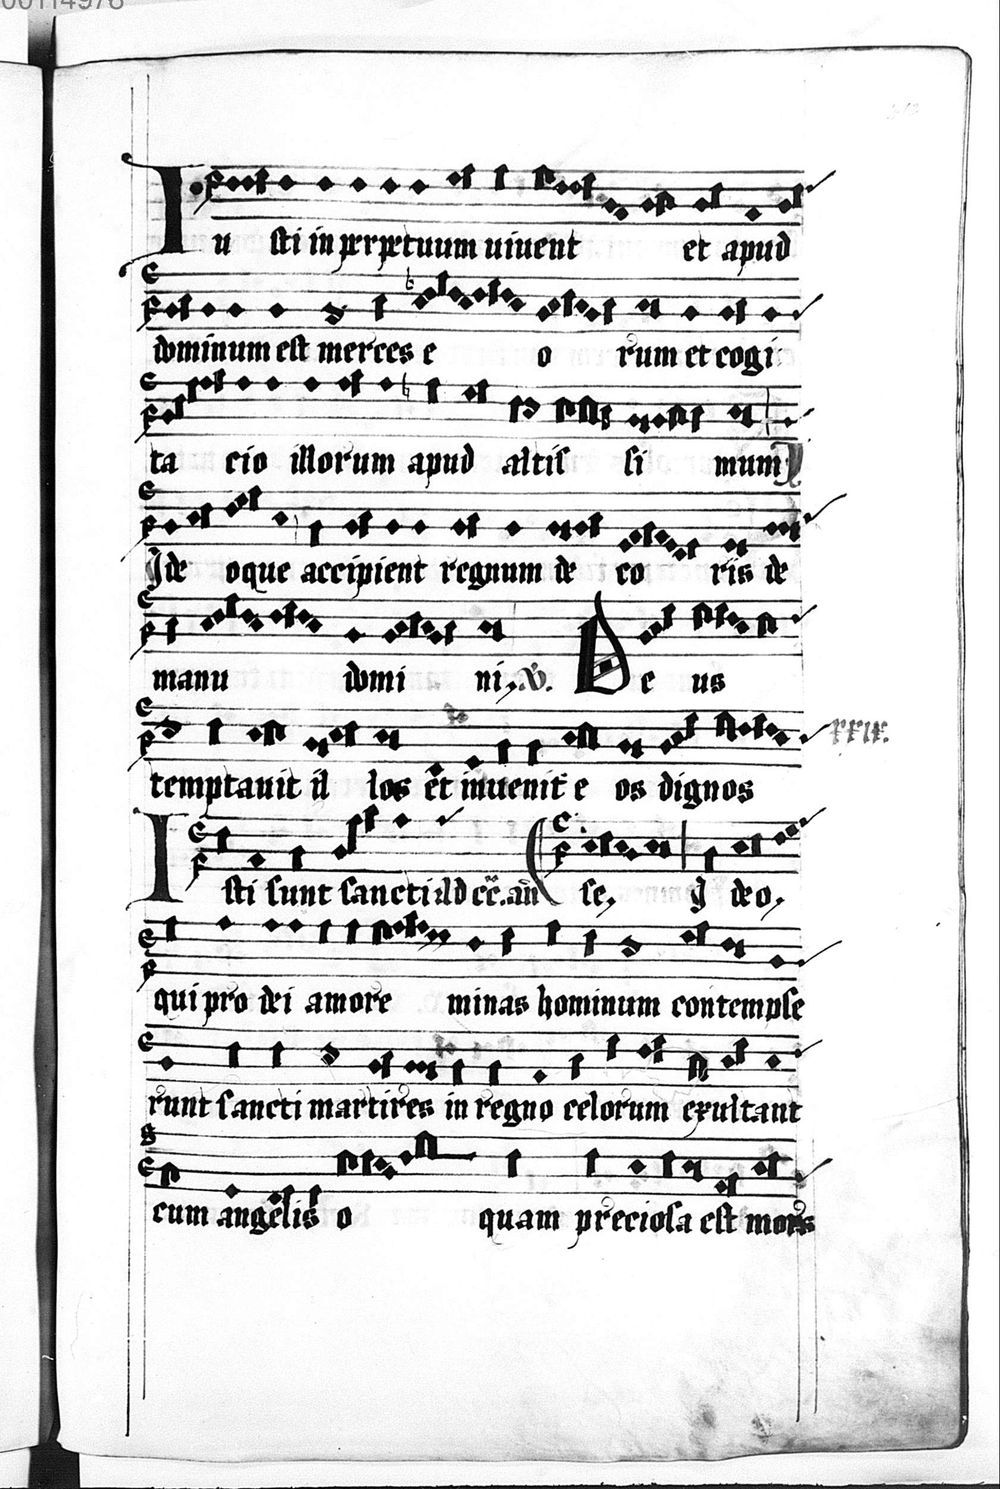 00114978
Iu sti in perpetuum uiuent et apud
dominum est merces e o rum et cogi
ta cio illorum apud altis si mum
Ide oque accipient regnum de co ris de
manu domi ni, V. De us
temptauit il los et inuenit e os dignos
Isti sunt sancti Ad cc. an se, I deo,
qui pro dei amore minas hominum contempse
runt sancti martires in regno celorum exultant
cum angelis o quam preciosa est mors